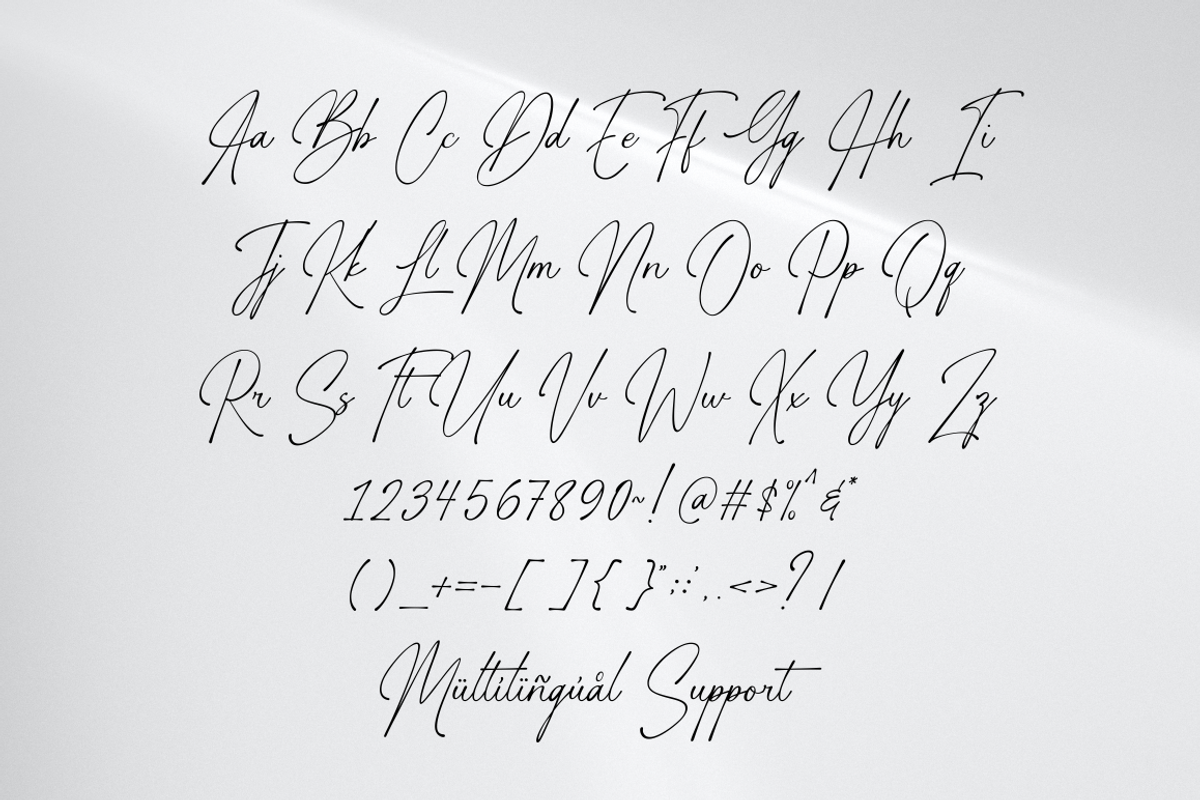 Aa Bb Cc Dd Ee Ff Gg Hh Ii
Jj Kk Ll Mm Nn Oo Pp Qq
Rr Ss Tt Uu Vv Ww Xx Yy Zz
1234567890~!@#$%^&*
()_+=-[]{}”;:’,.<>?/
Mültilïñgúål Support